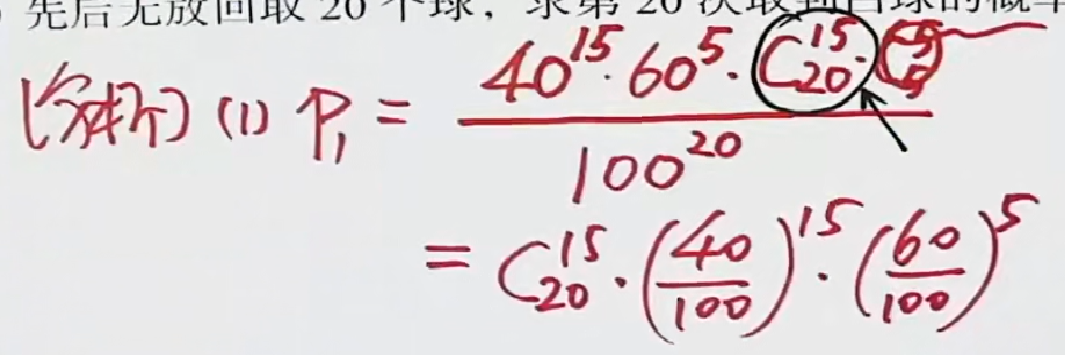 先后无放回取 20 个球，求第 20 次取到白球的概率
[分析] (1) P₁ = \frac{40^{15} \cdot 60^{5} \cdot C_{20}^{15} \cdot C_{5}^{5}}{100^{20}}
= C_{20}^{15} \cdot \left(\frac{40}{100}\right)^{15} \cdot \left(\frac{60}{100}\right)^{5}